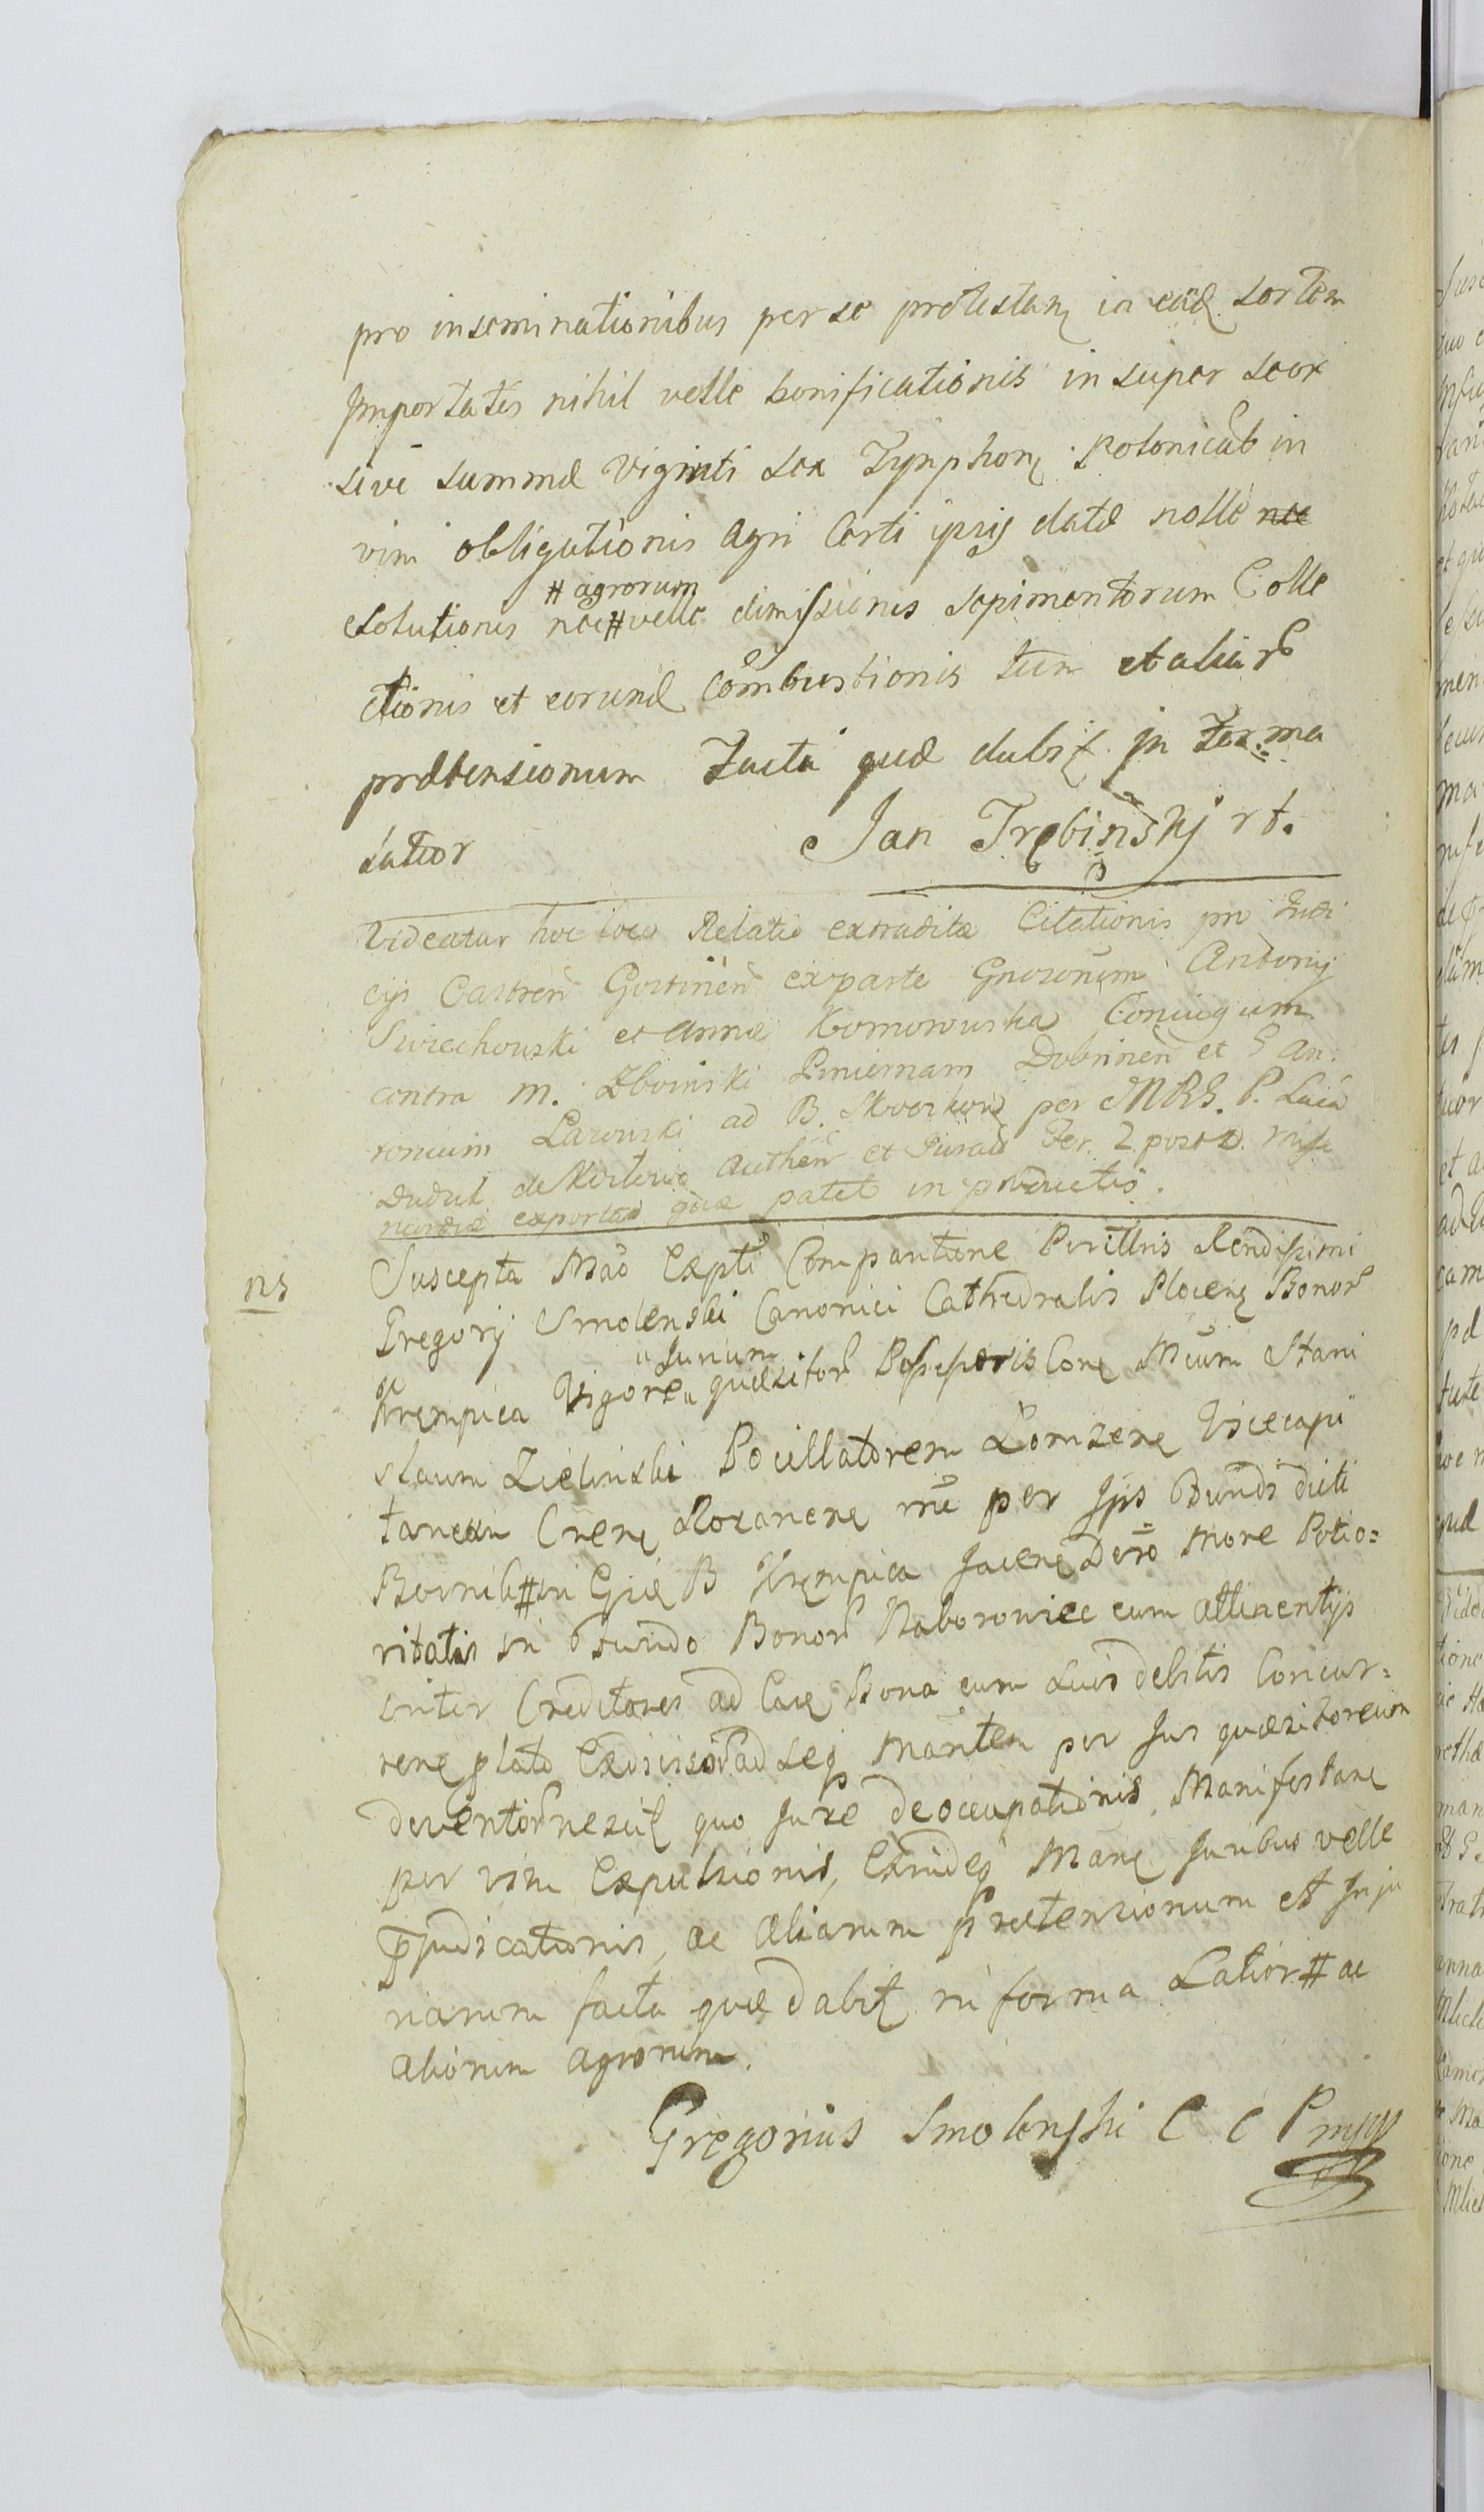 pro inseminationibus per se protestan in ead sortem
Importates nihil velle bonificationis in super seor
sive summæ Viginti sex Tynphon Polonicalt in
vim obligationis Agri Certi ipsis datæ nolle nec
# agrorum
esolutionis nec # velle dimissionis sepimentorum Colle
ctionis et eorund Combustionis tum et aliar
prætensionum Facta quæ dabit in For=ma
Latior
Jan Trębinskj rt.
Videatur hoc loco Relatio extraditæ Citationis pro Judi
cijs Castren Gostinen ex parte Gnosorum Antonij
Swiechowski et Annæ Komorowska Conjugum
contra M. Zboinski Pincernam Dobrinen et G An:
tonium Lasowski ad B. Skworkow per MRS. P. Luca
Duduk de Kortowo Authen et Jurat Fer. 2 post D. Mise
ricordiæ exportas quæ patet in productis.
ns
Suscepta Mão Expti Comparitione Perillris Rendissimi
Gregorij Smolenski Canonici Cathedralis Plocen Bonor
Krempica Vigore " quæsitor Possessoris Con Mcum Stani
" Jurium
slaum Zielinski Pocillatorem Łomzen Vicecapi
taneum Cnen Rozanen mẽ per Ipis Bundi dicti
Bovrili # in Gię B Krempica Jacen Dero More Potio=
ritatis in Fundo Bonor Naborowiec cum attinentijs
inter Creditores ad Eaq Bona cum suis debitis Concur=
ren plato Exdivisor ad seq Mantem per Jus quæsitoreum
deventor nescit quo Jure deoccupationis, Manifestan
per vim Expulsionis, Exindeq Man Juribus velle
Pjudicationis, ac Aliarum Prætensionum et Inju
riarum facta quæ dabit in forma Latior # ac
aliorum agrorum.
Gregorius Smolenski C C Pmpp